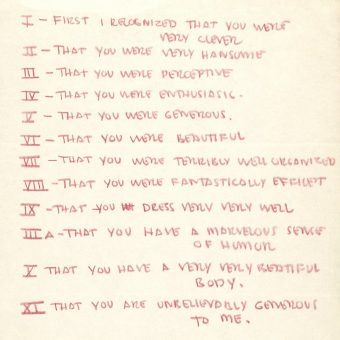 I - FIRST I RECOGNIZED THAT YOU WERE
VERY CLEVER
II - THAT YOU WERE VERY HANSOME
III - THAT YOU WERE PERCEPTIVE
IV - THAT YOU WERE ENTHUSIASIC.
V - THAT YOU WERE GENEROUS.
VI - THAT YOU WERE BEAUTIFUL
VII - THAT YOU WERE TERRIBLY WELL ORGANIZED
VIII - THAT YOU WERE FANTASTICALLY EFFICEPT
IX - THAT YOU DRESS VERY VERY WELL
III A - THAT YOU HAVE A MARVELOUS SENSE
OF HUMOR
X THAT YOU HAVE A VERY VERY BEATIFUL
BODY.
XI THAT YOU ARE UNBELIEVABLY GENEROUS
TO ME.